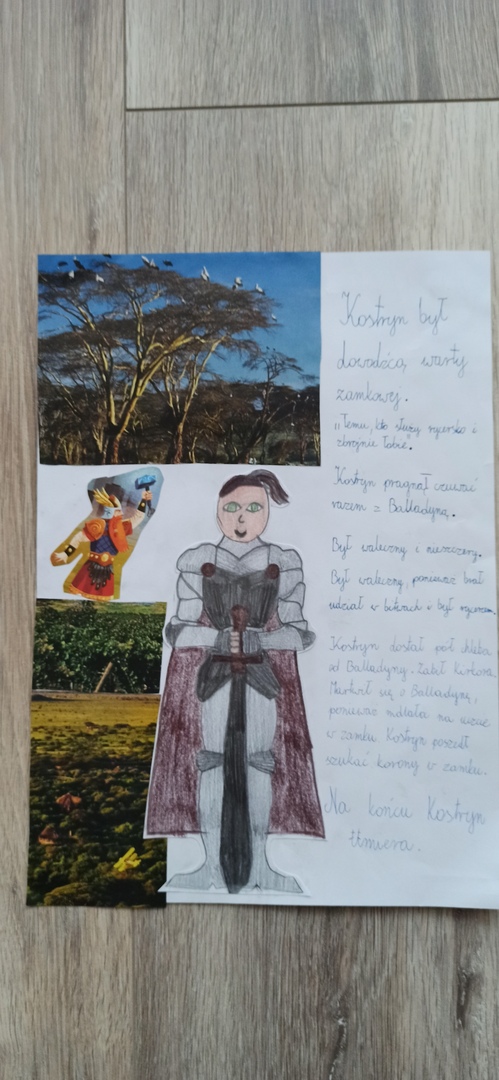 Kostryn był
dowódcą warty
zamkowej.
"Temu, kto służy rycersko i
zbrojnie Tobie".
Kostryn pragnął rządzić
razem z Balladyną.
Był waleczny i nieszczery.
Był waleczny, ponieważ brał
udział w bitwach i był rycerzem.
Kostryn dostał pół chleba
od Balladyny. Zabił Kirkora.
Martwił się o Balladynę,
ponieważ mdlała na uczcie
w zamku. Kostryn poszedł
szukać korony w zamku.
Na końcu Kostryn
umiera.